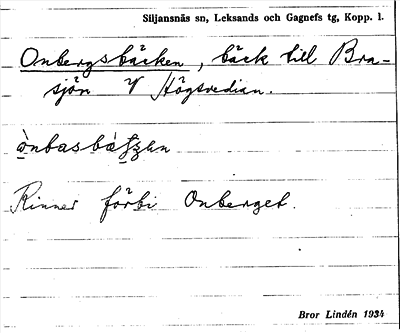 Siljansnäs sn, Leksands och Gagnefs tg, Kopp. l.
Onbergsbäcken, bäck till Bra-
sjön V Högsvedian.
Rinner förbi Onberget.
Bror Lindén 1934